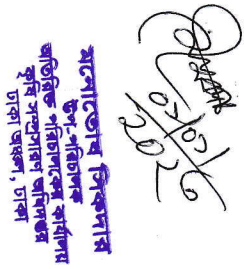 মনোতোষ সিকদার
উপ-পরিচালক
অতিরিক্ত পরিচালকের কার্যালয়
কৃষি সম্প্রসারণ অধিদপ্তর
ঢাকা অঞ্চল, ঢাকা